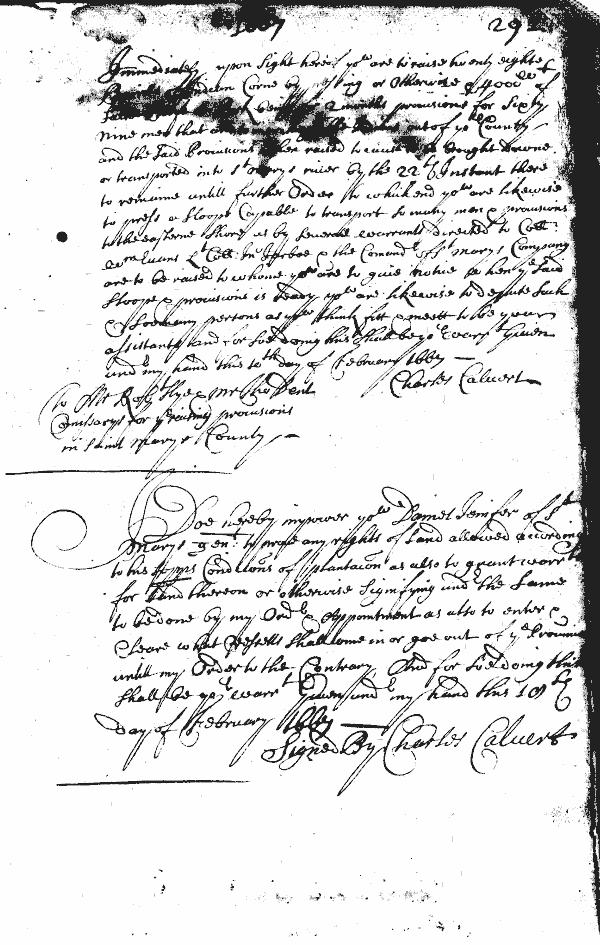 1667 292
Immediately upon Sight hereof yow are to raise twenty eight
Corne by pressing or Otherwise & 4000 lb of
2 months provisions for Sixty
nine men that are out of ye County
and the said Provisions when raised to cause to be brought downe
or transported into St Marys river by the 22th Instant there
to remaine untill further Order to which end yow are likewise
to press a Sloope Capable to transport so many men & provisions
to the easterne shore as by severall warrants directed to Coll
Wm Evans Lt Coll Jno Jarboe & the Comandr of St Marys Company
are to be raised to whome yow are to give notice when ye said
Sloope & provisions is ready yow are likewise to depute such
& soe many persons as yow thinke fitt & meett to be your
assistants and for soe doing this shall be yor warrt Given
undr my hand this 10th day of February 1667
Charles Calvert
To Mr
Comissarys for ye raising provisions
in Saint Marys County
I Doe hereby impower yow Daniel Jenifer of St
Marys gent to prove any rights of Land allowed according
to his Lopps Conditions of plantacon as also to grant warrts
for Land thereon or otherwise Signifying undr the Same
to be done by my Ordr & Appointment as also to enter &
Cleare what Vessells shall come in or goe out of ye Province
untill my Order to the Contrary, And for soe doing this
shall be yor warrt Given undr my hand this 10th
day of February 1667
Signed By Charles Calvert